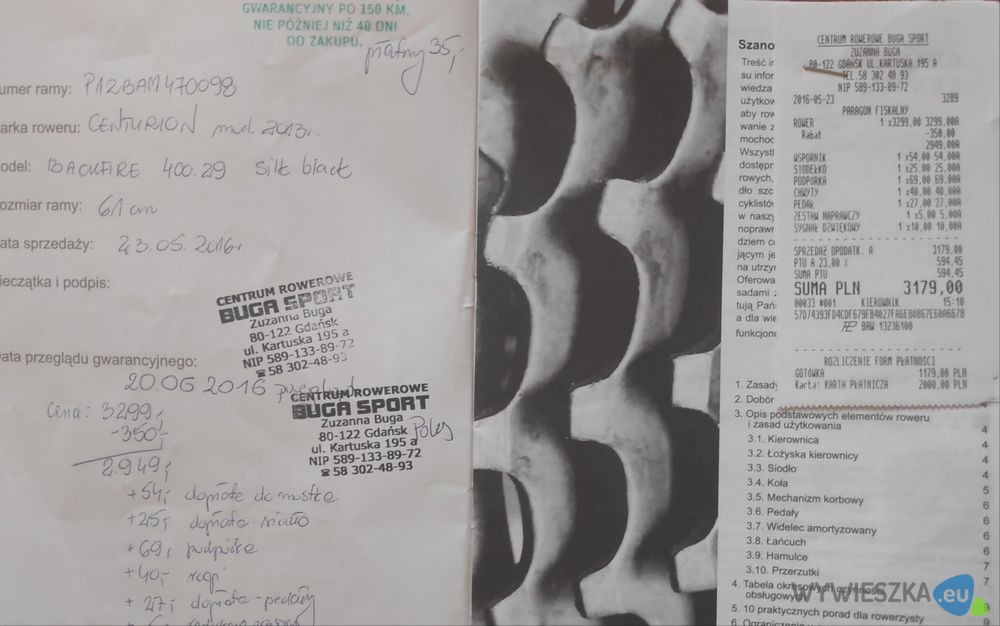 GWARANCYJNY PO 150 KM,
NIE PÓŹNIEJ NIŻ 40 DNI
OD ZAKUPU.
płatny 35,-
umer ramy: P12BAM470098
arka roweru: CENTURION mod. 2013r.
odel: BACKFIRE 400.29 silk black
ozmiar ramy: 61 cm
ata sprzedaży: 23.05.2016r
ieczątka i podpis:
CENTRUM ROWEROWE
BUGA SPORT
Zuzanna Buga
80-122 Gdańsk
ul. Kartuska 195 a
NIP 589-133-89-72
☎ 58 302-48-93
ata przeglądu gwarancyjnego:
20.06 2016
CENTRUM ROWEROWE
BUGA SPORT
Zuzanna Buga
80-122 Gdańsk
ul. Kartuska 195 a
NIP 589-133-89-72
☎ 58 302-48-93
Cena: 3299,-
-350,-
2.949,-
+54,- dopłata do mostka
+25,- dopłata siodło
+69,- podpórka
+40,- rogi
+27,- dopłata-pedały
Szano
Treść ir
su infor
wiedza
użytkow
aby row
wanie z
mochoc
Wszystl
dostępr
rowych,
dło szc
cyklistów
w naszy
noprawr
dziem o
jącym je
na utrzy
Oferowa
sadami z
tują Pańs
a dla wie
funkcjone
CENTRUM ROWEROWE BUGA SPORT
ZUZANNA BUGA
80-122 GDAŃSK UL.KARTUSKA 195 A
TEL.58 302 48 93
NIP 589-133-89-72
2016-05-23 3289
PARAGON FISKALNY
ROWER 1 x3299,00 3299,00A
Rabat -350,00
2949,00A
WSPORNIK 1 x54,00 54,00A
SIODEŁKO 1 x25,00 25,00A
PODPÓRKA 1 x69,00 69,00A
CHWYTY 1 x40,00 40,00A
PEDAŁ 1 x27,00 27,00A
ZESTAW NAPRAWCZY 1 x5,00 5,00A
SYGNAŁ DŹWIĘKOWY 1 x10,00 10,00A
SPRZEDAŻ OPODATK. A 3179,00
PTU A 23,00 % 594,45
SUMA PTU 594,45
SUMA PLN 3179,00
00033 #001 KIEROWNIK 15:10
BAW 13236100
ROZLICZENIE FORM PŁATNOŚCI
GOTÓWKA 1179,00 PLN
Karta: KARTA PŁATNICZA 2000,00 PLN
1. Zasady
2. Dobór
3. Opis podstawowych elementów roweru
i zasad użytkowania 4
3.1. Kierownica 4
3.2. Łożyska kierownicy 4
3.3. Siodło 4
3.4. Koła 5
3.5. Mechanizm korbowy 6
3.6. Pedały 6
3.7. Widelec amortyzowany 6
3.8. Łańcuch 6
3.9. Hamulce 7
3.10. Przerzutki 7
4. Tabela okresowych czynności
obsługowych
5. 10 praktycznych porad dla rowerzysty
WYWIESZKA.eu